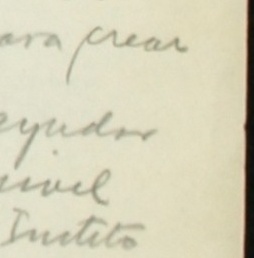 para crear
ayudar
nivel
Instito